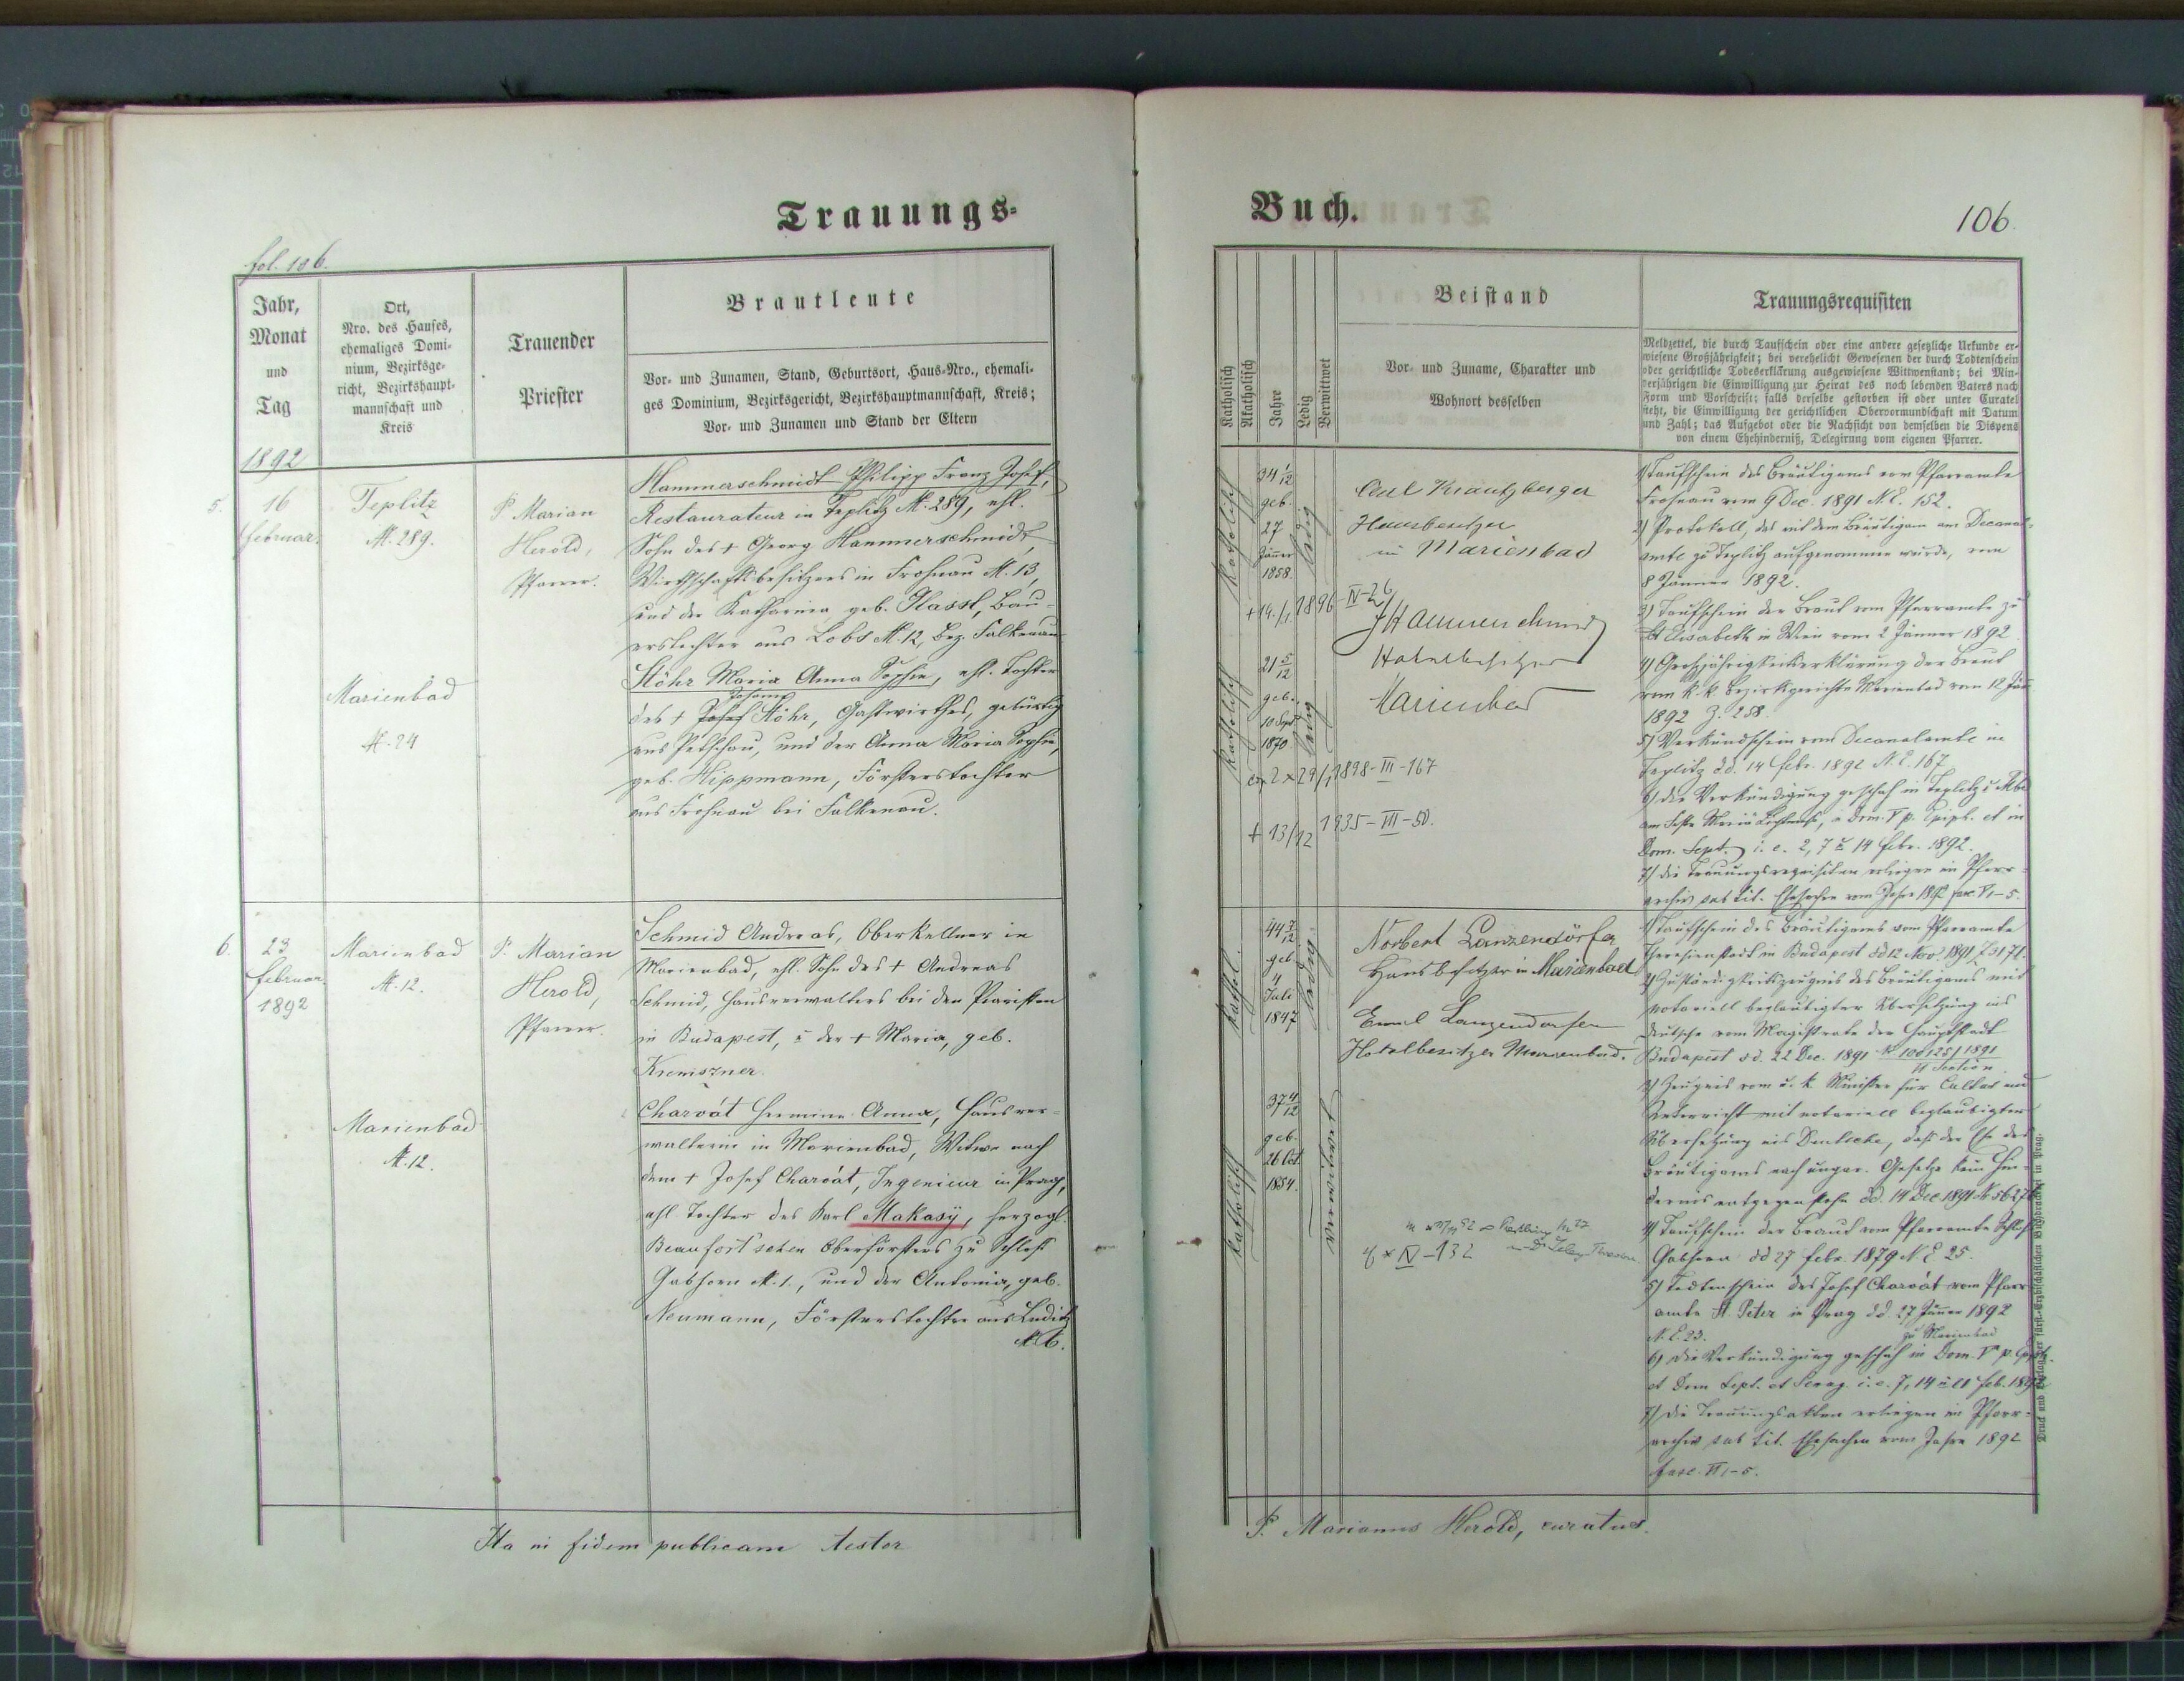 Trauungs-
fol. 106.
Jahr,
Monat
und
Tag
Ort,
Nro. des Hauses,
ehemaliges Domi-
nium, Bezirksge-
richt, Bezirkshaupt-
mannschaft und
Kreis
Trauender
Priester
Brautleute
Vor- und Zunamen, Stand, Geburtsort, Haus-Nro., ehemali-
ges Dominium, Bezirksgericht, Bezirkshauptmannschaft, Kreis;
Vor- und Zunamen und Stand der Eltern
1892
5.
16
Februar.
Teplitz
N. 289.
P. Marian
Herold,
Pfarrer.
Hammerschmidt Philipp Franz Josef,
Restaurateur in Teplitz N. 289, ehl.
Sohn des + Georg Hammerschmidt,
Wirthschaftsbesitzers in Frohnau N. 13,
und der Katharina geb. Glassl, Bau-
erstochter aus Lobs N. 12, Bez. Falkenau
Marienbad
N. 24
Stöhr Maria Anna Sophie, ehl. Tochter
Johann
des + Josef Stöhr, Gastwirthes, gebürtig
aus Petschau, und der Anna Maria Sophie,
geb. Hippmann, Försterstochter
aus Frohnau bei Falkenau.
6.
23
Februar.
1892
Marienbad
N. 12.
P. Marian
Herold,
Pfarrer.
Schmid Andreas, Oberkellner in
Marienbad, ehl. Sohn des + Andreas
Schmid, Hausverwalters bei den Piaristen
in Budapest, u der + Maria, geb.
Kremszner.
Marienbad
N. 12.
Charvát Hermine Anna, Hausver-
walterin in Marienbad, Witwe nach
dem + Josef Charvát, Ingenieur in Prag,
ehl. Tochter des Karl Makasy, herzogl.
Beaufort'schen Oberförsters zu Schloß
Gabhorn N. 1., und der Antonia, geb.
Neumann, Försterstochter aus Luditz
N. 6.
Ita in fidem publicam testor
Buch.
106.
Katholisch
Akatholisch
Jahre
Ledig
Verwittwet
Beistand
Vor- und Zuname, Charakter und
Wohnort desselben
Trauungsrequisiten
Meldzettel, die durch Taufschein oder eine andere gesetzliche Urkunde er-
wiesene Großjährigkeit; bei verehelicht Gewesenen der durch Todtenschein
oder gerichtliche Todeserklärung ausgewiesene Wittwenstand; bei Min-
derjährigen die Einwilligung zur Heirat des noch lebenden Vaters nach
Form und Vorschrift; falls derselbe gestorben ist oder unter Curatel
steht, die Einwilligung der gerichtlichen Obervormundschaft mit Datum
und Zahl; das Aufgebot oder die Nachsicht von demselben die Dispens
von einem Ehehinderniß, Delegirung vom eigenen Pfarrer.
Katholisch
34 1/12
geb.
27
Jänner
1858.
ledig
+ 14./1. 1896 - IV-26
Krautzberger
Hausbesitzer
in Marienbad
Hammerschmid
Hotelbesitzer
Marienbad
Katholisch
21 5/12
geb.
10 Sept
1870
ledig
2 x 29/1 1898-III-167
+ 13/12 1935-III-50.
1) Taufschein des Bräutigams vom Pfarramte
Frohnau vom 9 Dec. 1891 N.E. 152.
2) Protokoll, das mit dem Bräutigam am Decanal-
amte zu Teplitz aufgenommen wurde, vom
8 Jänner 1892.
3) Taufschein der Braut vom Pfarramte zu
St Elisabeth in Wien vom 2 Jänner 1892.
4) Großjährigkeitserklärung der Braut
vom k. k. Bezirksgerichte Marienbad vom 12 Jän
1892 Z. 258.
5) Verkündschein vom Decanalamte in
Teplitz dd. 14 Febr. 1892 N.E. 167
6) die Verkündigung geschah in Teplitz u Mbd
am Feste Mariä Lichtmeß, Dom. V p. Epiph. et in
Dom. Sept. i. e. 2, 7 u 14 Febr. 1892.
7) die Trauungsrequisiten erliegen im Pfarr-
archiv sub tit. Ehesachen vom Jahre 1892 fasc. V 1-5.
Kathol.
44 7/12
geb.
4
Juli
1847
ledig
Norbert Lanzendörfer
Hausbesitzer in Marienbad
Emil Lanzendörfer
Hotelbesitzer Marienbad.
Katholisch
37 4/12
geb.
26 Oct
1854.
verwitwet
x IV-132
1) Taufschein des Bräutigams vom Pfarramte
Theresienstadt in Budapest dd 12 Nov. 1891
2) Zuständigkeitszeugnis des Bräutigams mit
notariell beglaubigter Übersetzung ins
Deutsche vom Magistrate der Hauptstadt
Budapest dd. 22 Dec. 1891
3) Zeugnis vom u. k. Minister für Cultus und
Unterricht mit notariell beglaubigter
Übersetzung ins Deutsche, daß der Ehe des
Bräutigams nach ungar. Gesetze kein Hin-
dernis entgegenstehe dd. 14 Dec 1891
4) Taufschein der Braut vom Pfarramte Schloß
Gabhorn dd 27 Febr. 1879 N.E 25.
5) Todtenschein des Josef Charvát vom Pfarr
amte St. Peter in Prag dd. 27 Jänner 1892
N. E. 23.
zu Marienbad
6) die Verkündigung geschah in Dom. V p. Epiph.
et Dom. Sept. et Sexag. i. e. 7, 14 u 21 Feb. 1892
7) die Trauungsakten erliegen im Pfarr-
archiv sub tit. Ehesachen vom Jahre 1892
fasc. VI 1-5.
P. Marianus Herold, curatus.
Druck und Verlag der fürst-Erzbischöflichen Buchdruckerei in Prag.